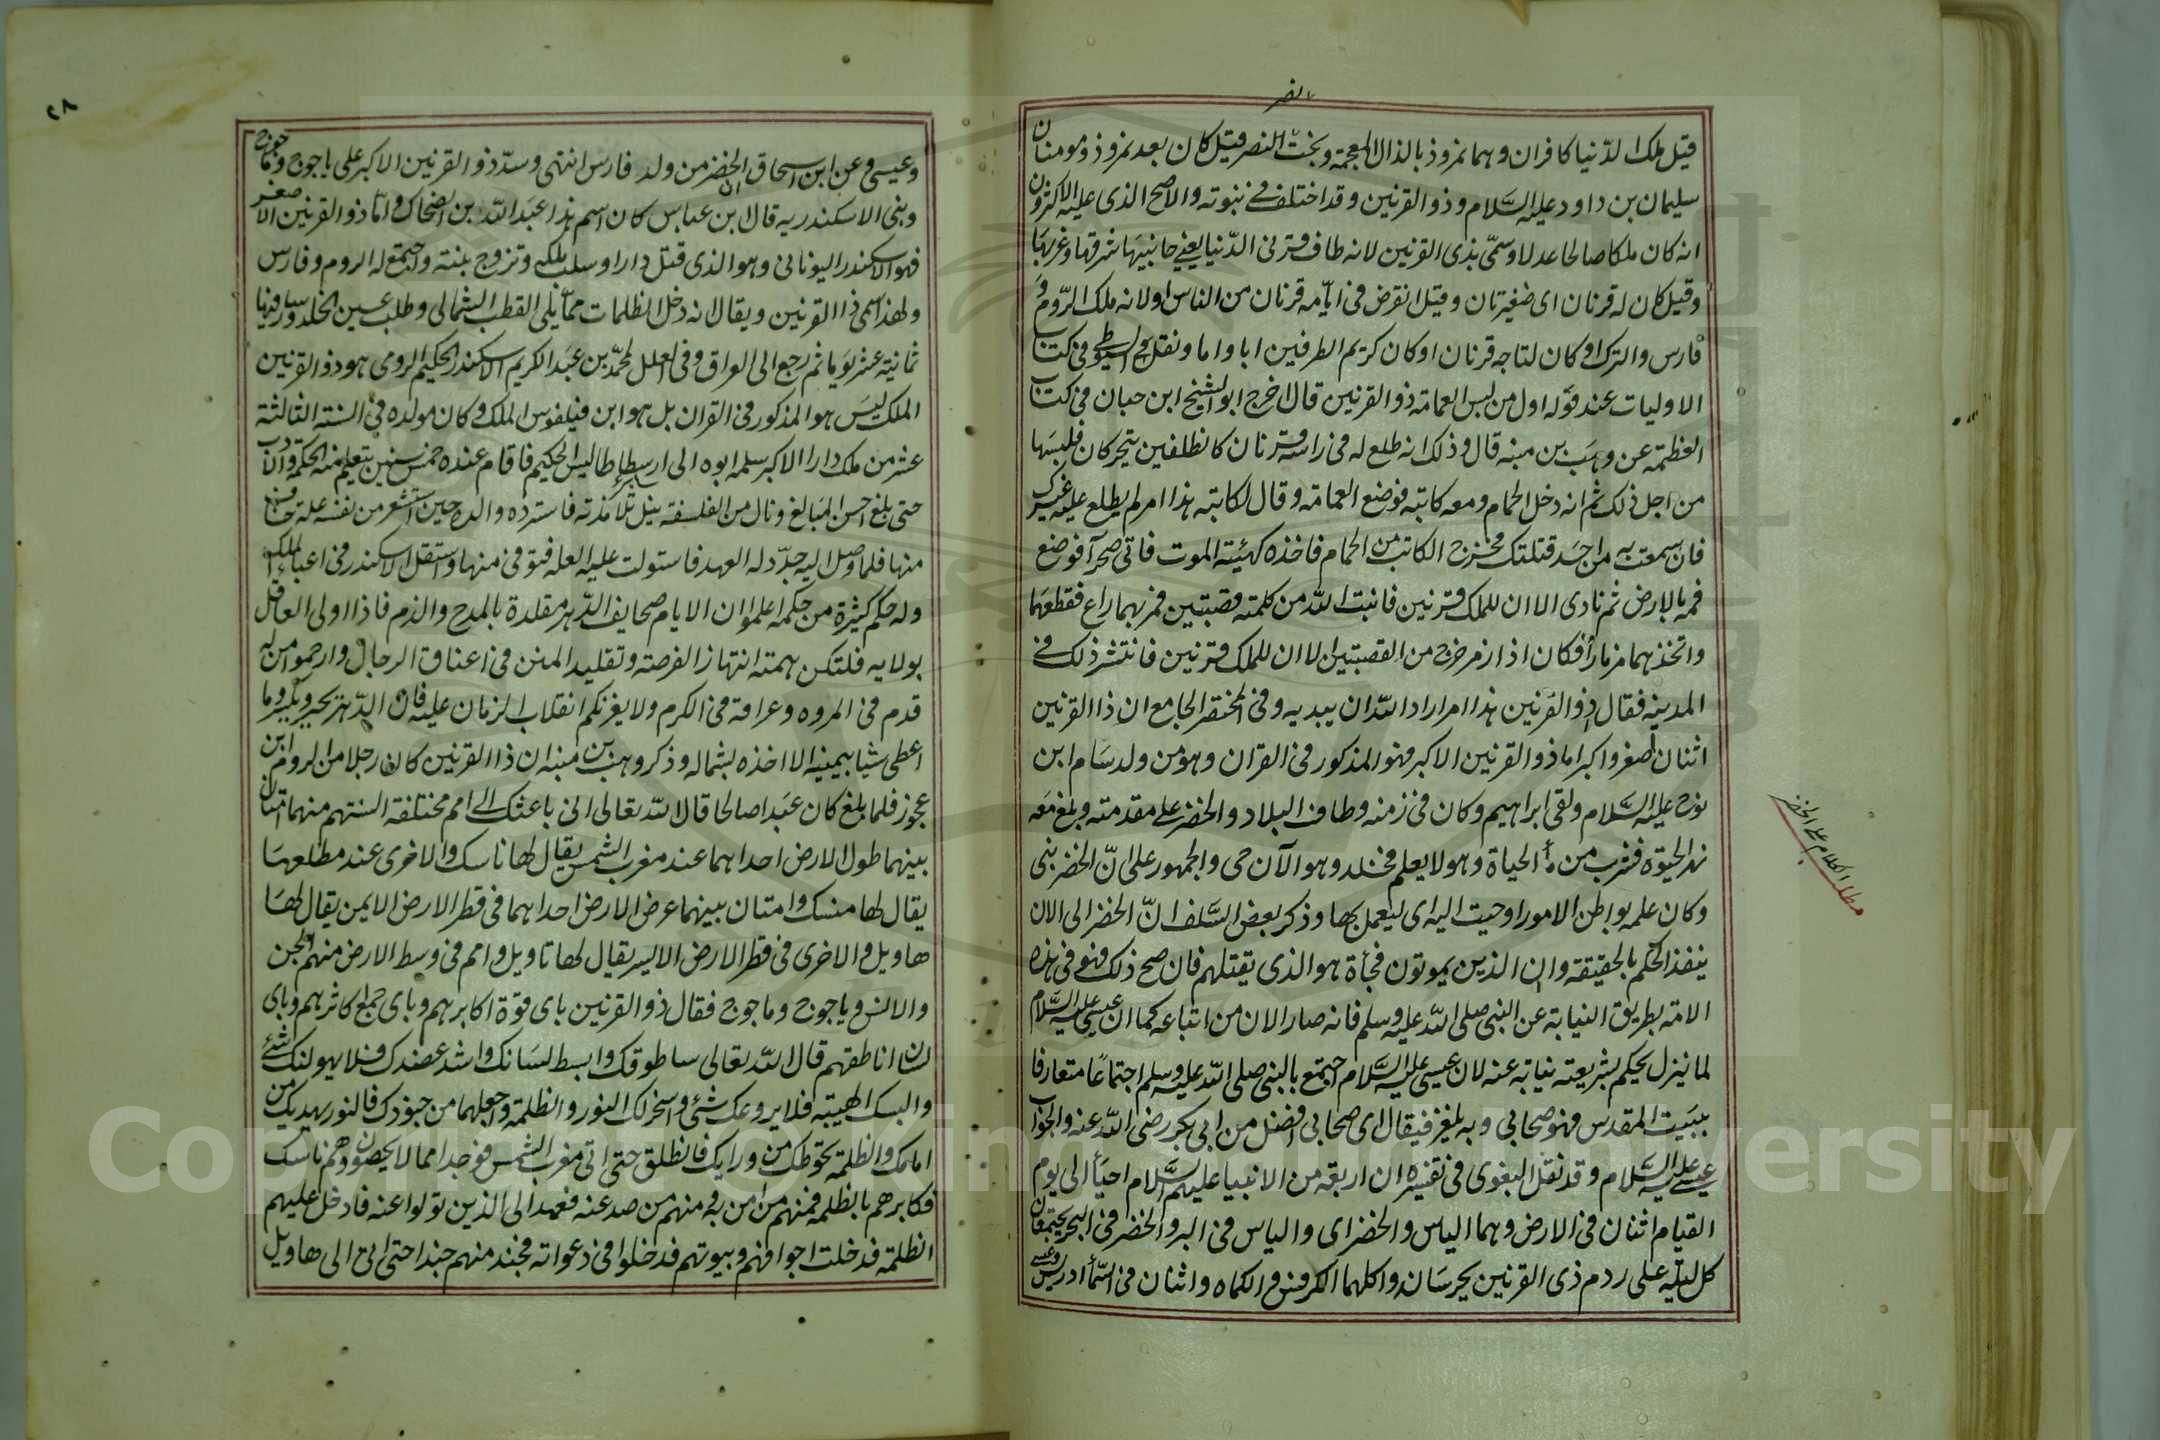 نصر
قيل ملك الدنيا كافران وهما نمروذ بالذال المعجمة وبخت النصر قيل كان بعد نمروذ ومومنان
سليمان بن داود عليه السلام وذو القرنين وقد اختلف في نبوته والاصح الذي عليه الاكثرون
انه كان ملكا صالحا عدلا وسمى بذي القرنين لانه طاف قرني الدنيا يعني جانبيها شرقها وغربها
وقيل كان له قرنان اي ضفيرتان وقيل انقرض في ايامه قرنان من الناس اولانه ملك الروم و
فارس والترك او كان لتاجه قرنان او كان كريم الطرفين ابا واما ونقل السيوطي في كتاب
الاوليات عند قوله اول من لبس العمامة ذو القرنين قال اخرج ابو الشيخ ابن حبان في كتاب
العظمة عن وهب بن منبه قال وذلك انه طلع له في راسه قرنان كالظلفين يتحركان فلبسها
من اجل ذلك ثم انه دخل الحمام ومعه كاتبه فوضع العمامة وقال لكاتبه هذا امر لم يطلع عليه غيرك
فان سمعت به من احد قتلتك فخرج الكاتب من الحمام فاخذه كهيئة الموت فاتى صحرآ فوضع
فمه بالارض ثم نادى الا ان للملك قرنين فانبت الله من كلمته قصبتين فمر بهما راع فقطعهما
واتخذهما مزمارا فكان اذا زمر خرج من القصبتين الا ان للملك قرنين فانتشر ذلك في
المدينه فقال ذو القرنين هذا امر اراد الله ان يبديه وفي المختصر الجامع ان ذا القرنين
اثنان اصغر واكبر اما ذو القرنين الاكبر فهو المذكور في القران وهو من ولد سام ابن
نوح عليه السلام ولقى ابراهيم وكان في زمنه وطاف البلاد والخضر على مقدمته وبلغ معه
نهر الحيوة فشرب من مآ الحياة وهو لا يعلم فخلد وهو الآن حى والجمهور على انّ الخضر نبى
وكان علمه بواطن الامور اوحيت اليه اي ليعمل بها وذكر بعض السلف انّ الخضر الى الان
ينفذ الحكم بالحقيقة وان الذين يموتون فجأة هو الذي يقتلهم فان صح ذلك فهو في هذه
الامة بطريق النيابة عن النبى صلى الله عليه وسلم فانه صار الان من اتباعه كما ان عيسى عليه السلام
لما ينزل يحكم بشريعته نيابة عنه لان عيسى عليه السلام اجتمع بالنبى صلى الله عليه وسلم اجتماعًا متعارفا
ببيت المقدس فهو صحابي وبه يلغز فيقال اى صحابي افضل من ابى بكر رضى الله عنه والجواب
عيسى عليه السلام وقد نقل البغوى في تفسيره ان اربعة من الانبيا عليهم السلام احيآ الى يوم
القيام اثنان في الارض وهما الياس والخضر اى والياس في البر والخضر في البحر يجتمعان
كل ليلة على ردم ذى القرنين يحرسانه واكلهما الكرفس والكماه واثنان في السمآ ادريس وعيسى
مطلب الكلام على الخضر
٢٨
وعيسى وعن ابن اسحاق ان الخضر من ولد فارس انتهى وسدّ ذو القرنين الاكبر على ياجوج وماجوج
وبنى الاسكندريه قال ابن عباس كان اسم هذا عبد الله بن الضحاك واما ذو القرنين الاصغر
فهو الاسكندر اليونانى وهو الذى قتل دارا وسلب ملكه وتزوج بنته واجتمع له الروم وفارس
ولهذا سمى ذا القرنين ويقال انه دخل الظلمات مما يلى القطب الشمالى وطلب عين الخلد وسار فيها
ثمانية عشر يوما ثم رجع الى العراق وفى العلل لمحمد بن عبد الكريم الاسكندر الحكيم الرومى هو ذو القرنين
الملك ليس هو المذكور في القران بل هو ابن فيلفوس الملك وكان مولده في السنة الثالثة
عشر من ملك دارا الاكبر سلمه ابوه الى ارسطاطاليس الحكيم فاقام عنده خمس سنين يتعلم منه الحكمة والاداب
حتى بلغ احسن المبالغ ونال من الفلسفة ينل تلامذته فاسترده والده حين استشعر من نفسه علة خاف
منها فلما وصل اليه جدّد له العهد فاستولت عليه العلة فتوفى منها واستقل الاسكندر في اعباء الملك
وله حكم كثيرة من حكمه اعلموا ان الايام صحايف الدهر مقلدة بالمدح والذم فاذا اولى العاقل
بولايه فلتكن همته انتهاز الفرصة وتقليد المنن في اعناق الرجال وارحموا من له
قدم في المروه وعراقة في الكرم ولا يغرنكم انقلاب الزمان عليه فان الدهر يجبر ويكسر وما
اعطى شيا بيمينه الا اخذه بشماله وذكر وهب بن منبه ان ذا القرنين كان رجلا من الروم ابن
عجوز فلما بلغ كان عبدا صالحا قال الله تعالى انى باعثك الى امم مختلفة السنتهم منهما امتان
بينهما طول الارض احداهما عند مغرب الشمس يقال لها ناسك والاخرى عند مطلعها
يقال لها منسك وامتان بينهما عرض الارض احداهما في قطر الارض الايمن يقال لها
هاويل والاخرى في قطر الارض الايسر يقال لها تاويل وامم في وسط الارض منهم الجن
والانس وياجوج وماجوج فقال ذو القرنين باى قوة اكابرهم وباى جمع اكاثرهم وباى
لسان اناطقهم قال الله تعالى ساطوقك وابسط لسانك واشد عضدك فلا يهولنك شئ
والبسك الهيبته فلا يروعك شئ واسخر لك النور والظلمة واجعلهما من جنودك فالنور يهديك من
امامك والظلمة تحوطك من ورايك فانطلق حتى اتى مغرب الشمس فوجد امما لا يحصون وهم ناسك
فكابرهم بالظلمة فمنهم من امن به ومنهم من صد عنه فعمد الى الذين تولوا عنه فادخل عليهم
الظلمة فدخلت اجوافهم وبيوتهم فدخلوا في دعواته فجند منهم جندا حتى اتى الى هاويل
Copyright © King Saud University